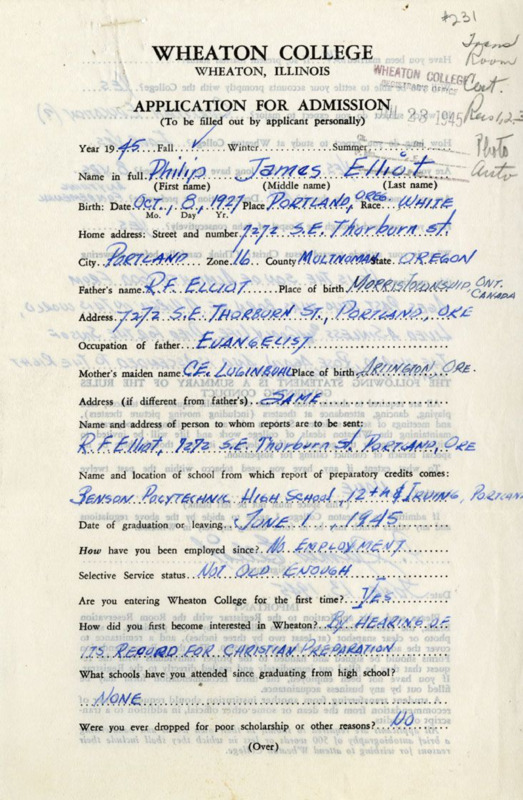 #231
Trans
Room
Cert.
Rec 1,2,3
Photo
Auto
WHEATON COLLEGE
WHEATON, ILLINOIS
WHEATON COLLEGE
23 1945
APPLICATION FOR ADMISSION
(To be filled out by applicant personally)
Year 1945 Fall ✓ Winter Summer
Name in full Philip James Elliot
(First name) (Middle name) (Last name)
Birth: Date Oct., 8, 1927 Place PORTLAND, OREG. Race WHITE
Mo. Day Yr.
Home address: Street and number 7272 S.E. Thorburn St.
City PORTLAND Zone 16 County MULTNOMAH State OREGON
Father's name R.F. ELLIOT Place of birth MORRIS TOWNSHIP, ONT. CANADA
Address 7272 S.E. THORBURN ST., PORTLAND, ORE
Occupation of father EVANGELIST
Mother's maiden name C.E. LUGINBUHL Place of birth ARLINGTON, ORE.
Address (if different from father's) SAME
Name and address of person to whom reports are to be sent:
R F Elliot, 7272 S.E. Thorburn St, PORTLAND, ORE
Name and location of school from which report of preparatory credits comes:
BENSON POLYTECHNIC HIGH SCHOOL, 12th & IRVING, PORTLAND
Date of graduation or leaving JUNE 1, 1945
How have you been employed since? NO EMPLOYMENT
Selective Service status NOT OLD ENOUGH
Are you entering Wheaton College for the first time? YES
How did you first become interested in Wheaton? BY HEARING OF
ITS RECORD FOR CHRISTIAN PREPARATION
What schools have you attended since graduating from high school?
NONE
Were you ever dropped for poor scholarship or other reasons? NO
(Over)